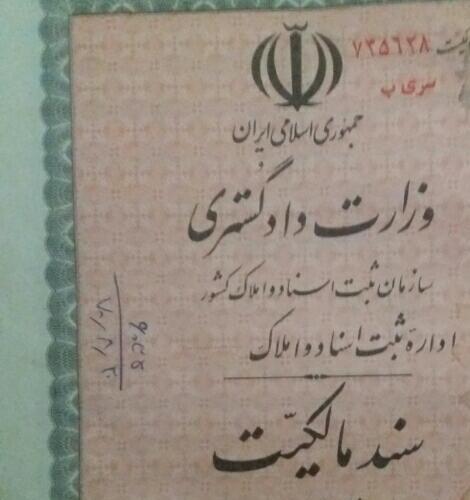 ۷۳۵۶۳۸
سری ب
جمهوری اسلامی ایران
وزارت دادگستری
سازمان ثبت اسناد و املاک کشور
اداره ثبت اسناد و املاک
سند مالکیّت